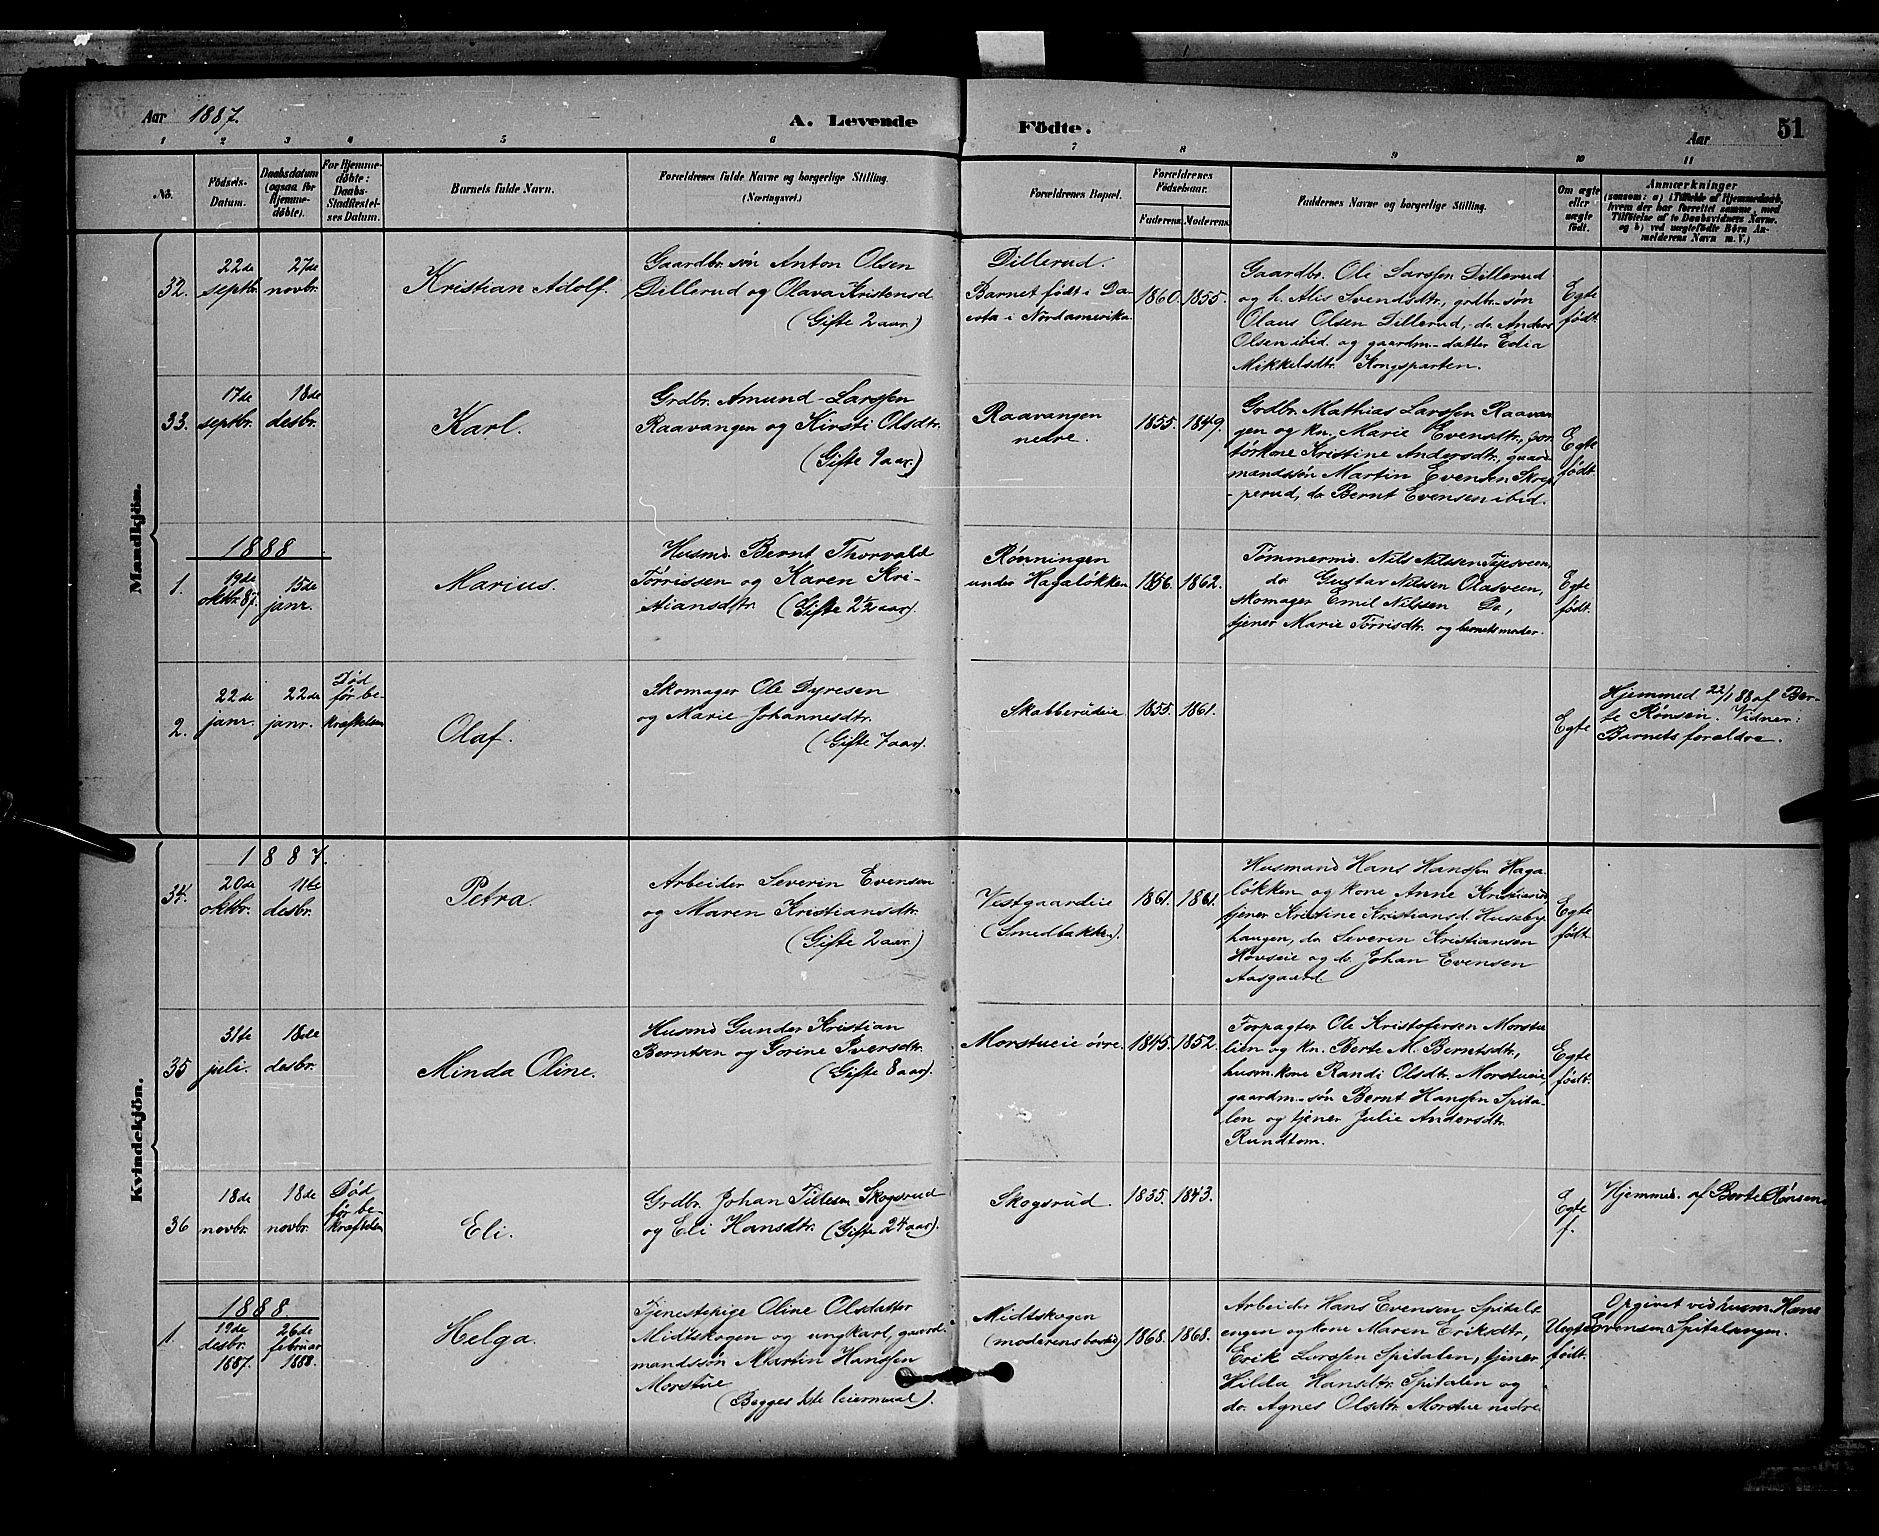 Aar 1887. A. Levende Födte. Aar 51
1 2 3 4 5 6 7 8 9 10 11
No.
Födsels-
Datum.
Daabsdatum
(ogsaa for
Hjemme-
döbte).
For Hjemme-
döbte:
Daabs-
Stadfæstel-
ses Datum.
Barnets fulde Navn.
Forældrenes fulde Navne og borgerlige Stilling.
(Næringsvei.)
Forældrenes Bopæl.
Forældrenes
Födselsaar.
Faderens. Moderens.
Faddernes Navne og borgerlige Stilling.
Om ægte
eller
uægte
födt.
Anmærkninger
(saasom: a) i Tilfælde af Hjemmedaab,
hvem der har forrettet samme, med
Tilföielse af to Daabsvidners Navne,
og b) ved uægtefödte Börn An-
melderens Navn m. V.)
Mandkjön.
32.
22de
septbr.
27de
novbr.
Kristian Adolf.
Gaardbr. søn Anton Olsen
Dillerud og Olava Kristensd.
(Gifte 2 aar)
Dillerud.
Barnet født i Da-
cota i Nordamerika.
1860. 1855.
Gaardbr. Ole Larssen Dillerud
og h. Alis Svendsdtr., grdbr. søn
Olaus Olsen Dillerud, do Anders
Olsen ibid. og gaardm.-datter Edia
Mikkelsdtr. Kongsparten.
Egte
født.
33.
17de
septbr.
18de
desbr.
Karl.
Grdbr. Amund Larssen
Raavangen og Kirsti Olsdtr.
(Gifte 9 aar.)
Raavangen
nedre.
1855. 1849.
Grdbr. Mathias Larssen Raavan-
gen og kn. Marie Evensdtr.,
Kristine Andersdtr., gaard-
mandssøn Martin Evensen Skrep-
perud, do Bernt Evensen ibid.
Egte
født.
1888
1.
19de
oktbr. 87.
15de
janr.
Marius.
Husmd. Bernt Thorvald
Tørrissen og Karen Kri-
stiansdtr. (Gifte 2½ aar)
Rønningen
under Hagaløkken
1856. 1862.
Tømmermd. Nils Nilssen
do Gustav Nilssen Olasveen,
skomager Emil Nilssen Do,
tjener Marie Tørrisdtr. og barnets moder.
Egte
født.
2.
22de
janr.
22de
janr.
Død
før be-
kræftelsen
Olaf.
Skomager Ole Dyresen
og Marie Johannesdtr.
(Gifte 7 aar).
Skabberudeie.
1855. 1861.
Egte
Hjemmed. 22/1 88 af Ber-
te Rønsen. Vidner:
Barnets forældre.
Kvindekjön.
1887.
34.
20de
oktbr.
11te
desbr.
Petra.
Arbeider Severin Evensen
og Maren Kristiansdtr.
(Gifte 2 aar.)
Vestgaardeie
(Smedbakken).
1861. 1861.
Husmand Hans Hanssen Haga-
løkken og kone Anne Kristiansd
tjener Kristine Kristiansd. Huseby-
haugen, do Severin Kristiansen
Hovseie og do Johan Evensen
Aasgaard
Egte
født.
35
31te
juli.
18de
desbr.
Minda Oline.
Husmd Gunder Kristian
Berntsen og Gorine Iversdtr.
(Gifte 8 aar).
Morstueie øvre.
1845. 1852.
Forpagter Ole Kristofersen Morstu-
lien og kn. Berte M. Berntsdtr.,
husm. kone Randi Olsdtr. Morstueie
gaardm.-søn Bernt Hanssen Spita-
len og tjener Julie Andersdtr.
Rundtom.
Egte
født.
36
18de
novbr.
18de
novbr.
Død
før be-
kræftelsen
Eli.
Grdbr. Johan Skogsrud
og Eli Hansdtr. (Gifte 24 aar).
Skogsrud.
1835. 1843.
Egte
f.
Hjemmed. af Berte Rønsen.
1888
1.
19de
desbr.
1887.
26de
februar
1888.
Helga.
Tjenestepige Oline Olsdatter
Midtskogen og ungkarl, gaard-
mandssøn Martin Hanssen
Morstue
(Begges 1ste leiermaal).
Midtskogen
(moderens bosted)
1868. 1868.
Arbeider Hans Evensen Spitals-
engen og kone Maren Eriksdtr,
Erik Larssen Spitalen, tjener
Hilda Hansdtr. Spitalen og
do. Agnes Olsdtr. Morstue nedre.
Uegte
født.
Opgivet ved husm. Hans
Evensen Spitalengen.